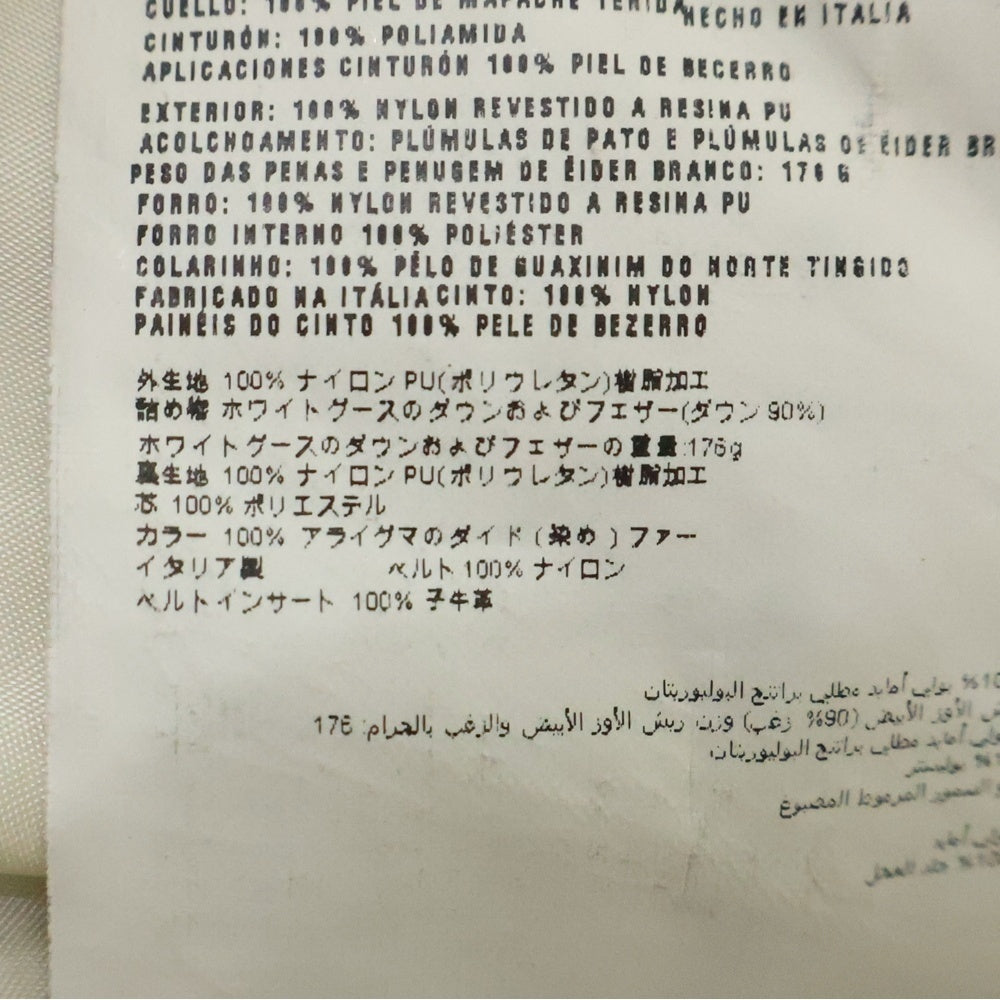 CUELLO: 100% PIEL DE MAPACHE TEÑIDA HECHO EN ITALIA
CINTURÓN: 100% POLIAMIDA
APLICACIONES CINTURÓN 100% PIEL DE BECERRO
EXTERIOR: 100% NYLON REVESTIDO A RESINA PU
ACOLCHOAMENTO: PLÚMULAS DE PATO E PLÚMULAS DE ÉIDER BR
PESO DAS PENAS E PENUGEM DE ÉIDER BRANCO: 176 G
FORRO: 100% NYLON REVESTIDO A RESINA PU
FORRO INTERNO 100% POLIÉSTER
COLARINHO: 100% PÊLO DE GUAXINIM DO NORTE TINGIDO
FABRICADO NA ITÁLIA CINTO: 100% NYLON
PAINÉIS DO CINTO 100% PELE DE BEZERRO
外生地 100% ナイロン PU(ポリウレタン)樹脂加工
詰め物 ホワイトグースのダウンおよびフェザー(ダウン 90%)
ホワイトグースのダウンおよびフェザーの重量:176g
裏生地 100% ナイロン PU(ポリウレタン)樹脂加工
芯 100% ポリエステル
カラー 100% アライグマのダイド (染め) ファー
イタリア製 ベルト 100% ナイロン
ベルトインサート 100% 子牛革
بولي أمايد مطلي براتنج البوليوريتان
الأوز الأبيض (90% زغب) وزن ريش الأوز الأبيض والزغب بالجرام: 176
أمايد مطلي براتنج البوليوريتان
بوليستر
المصبوغ